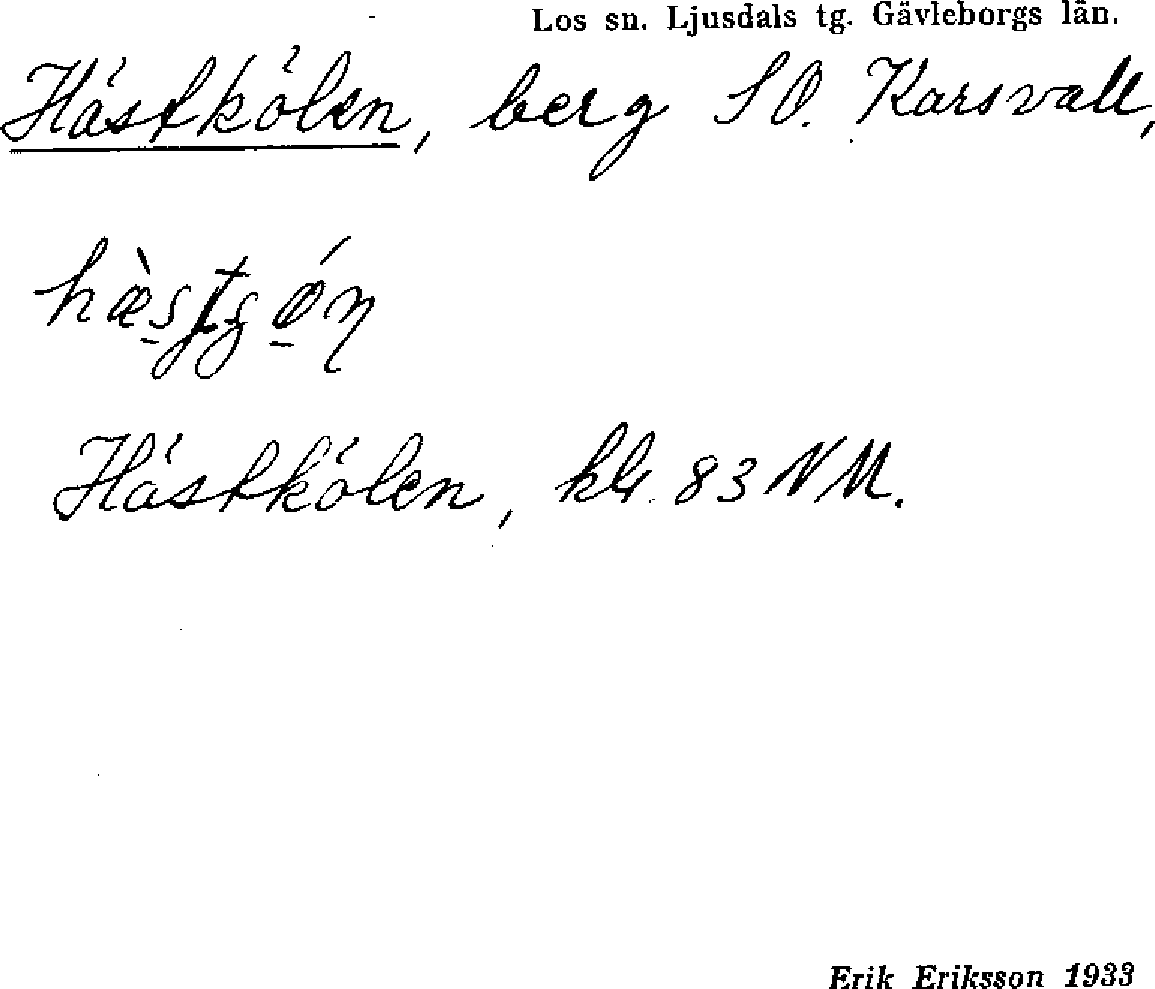 Los sn. Ljusdals tg. Gävleborgs län.
Hästkölen, berg SO. Karsvall,
Hästkölen, kbl. 83 NM.
Erik Eriksson 1933